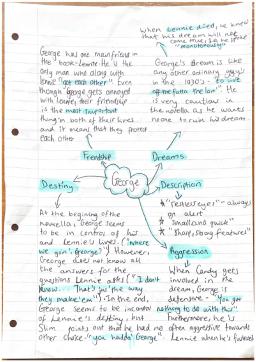 When Lennie died, he knew
that his dream will not
come true. So he is the
"monotonously"
George has one main friend in
the book - Lennie. He is the
only man who along with
Lennie "got each other". Even
though George gets annoyed
with Lennie, their friendship
is the most important
thing in both of their lives
and it means that they protect
each other
George's dream is like
any other ordinary guy's
in the 1930's - to live
off the fatta the lan'. He
is very cautious in
the novella as he wants
no one to ruin his dream
Friendship
Dreams
Destiny
George
Description
At the begining of the
novella, George seems
to be in control of his
and Lennie's lives. ("where
we goin', George?") However,
George does not know all
the answers for the
questions Lennie asks ("I don't
know. That's jus' the way
they make 'em") In the end,
George seems to be in control
of Lennie's destiny. However
Slim points out that he had no
other choice - "you hadda George"
* "restless eyes" - always
on alert
* "Small and quick"
* "Sharp, strong features"
Aggression
When Candy gets
involved in the
dream, George is
defensive - "You got
nothing to do with this"
Furthermore, he is
often aggressive towards
Lennie when he's